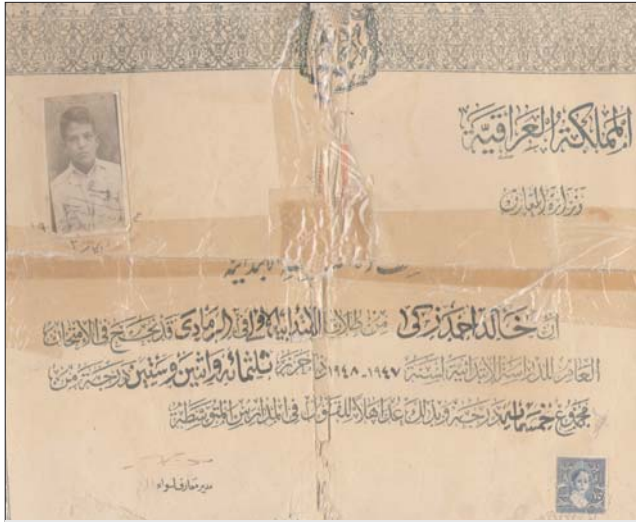 المملكة العراقية
وزارة المعارف
ان خالد احمد زكي من طلاب الابتدائية الاولى في الرمادي قد نجح في الامتحان
العام للدراسة الابتدائية لسنة ١٩٤٧-١٩٤٨ واحرز ثلثمائة واثنين وستين درجة من
مجموع خمسمائة درجة وبذلك عد اهلا للقبول في المدارس المتوسطة
مدير معارف لواء